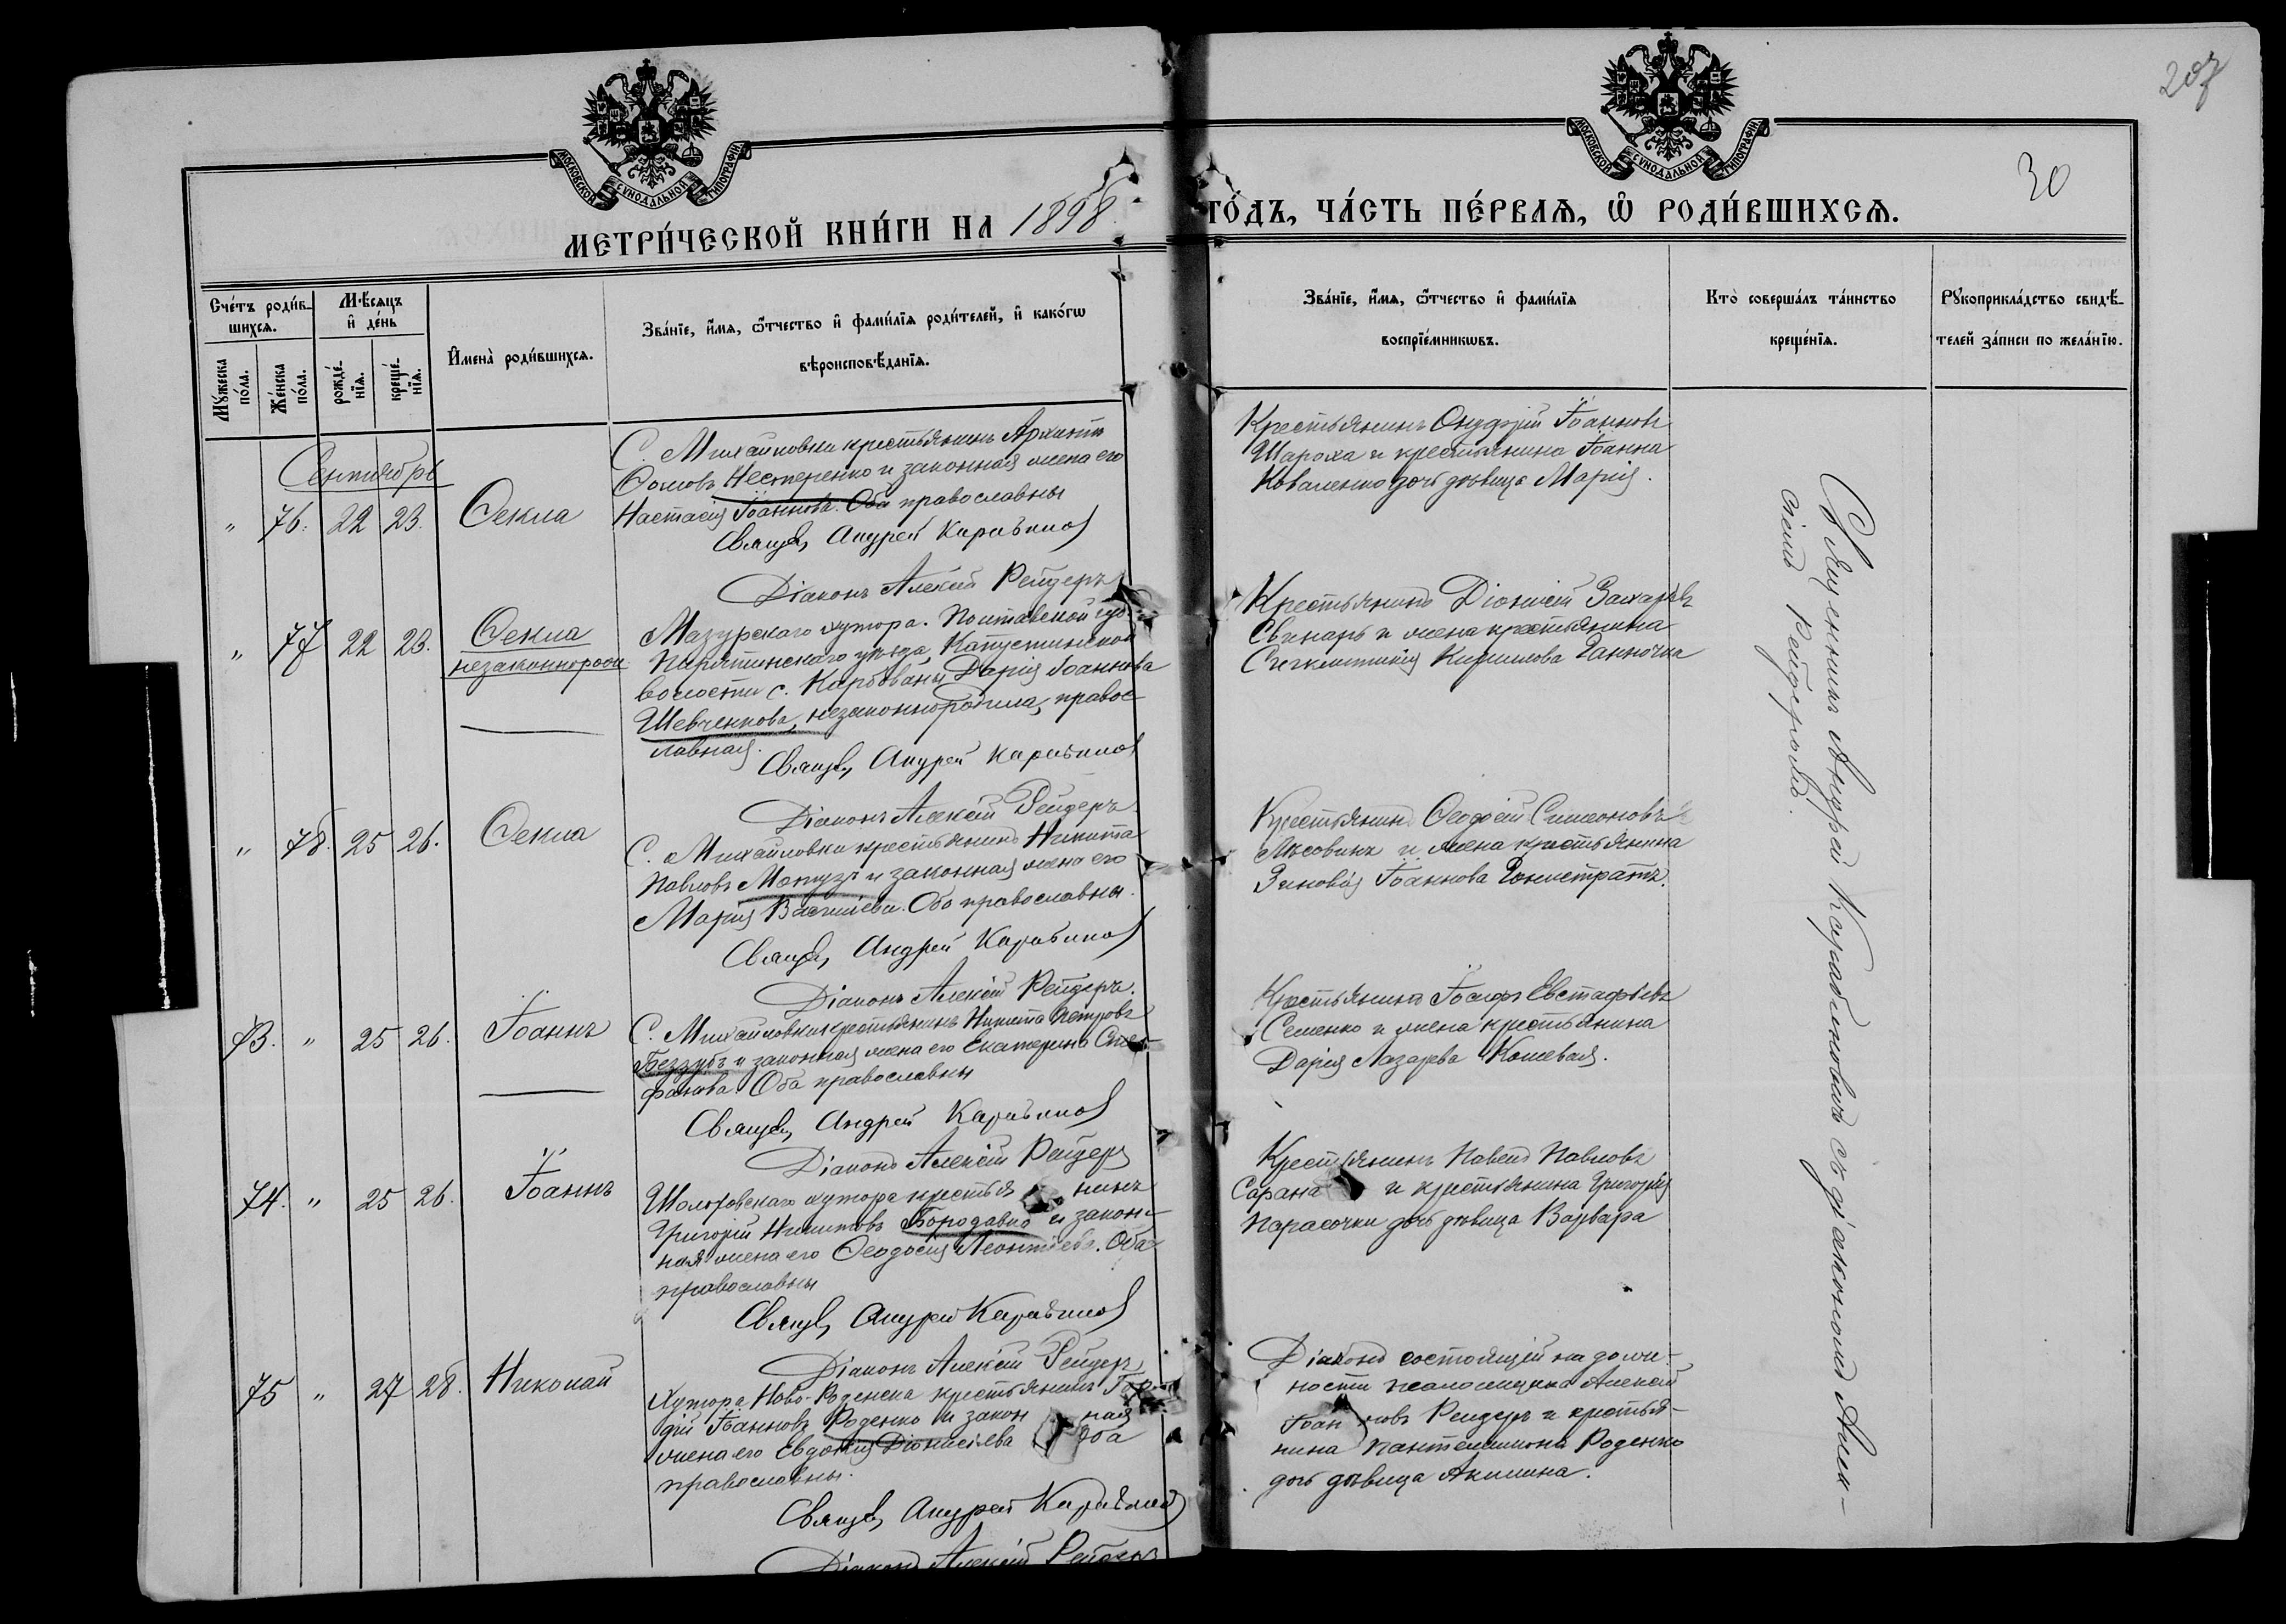 207
30
МОСКОВСКОЙ СѴНОДАЛЬНОЙ ТИПОГРАФІИ
МОСКОВСКОЙ СѴНОДАЛЬНОЙ ТИПОГРАФІИ
МЕТРИ́ЧЕСКОЙ КНИ́ГИ НА 1898 ГО́ДЪ, ЧА́СТЬ ПЕ́РВАЯ, Ѡ РОДИ́ВШИХСЯ.
Сче́тъ роди́в-
шихся.
Мѣ́сяцъ
и де́нь
Му́жеска
по́ла.
Же́нска
по́ла.
рожде́-
нїя.
креще́-
нїя.
Имена̀ роди́вшихся.
Зва́нїе, и́мя, ѻ́тчество и фами́лїя роди́телей, и како́гѡ
вѣроисповѣ́данїя.
Зва́нїе, и́мя, ѻ́тчество и фами́лїя
воспрїе́мникѡвъ.
Кто̀ соверша́лъ та́инство
креще́нїя.
Рукоприкла́дство свидѣ́-
телей за́писи по жела́нїю.
Сентябрь
" 76. 22 23. Ѳекла
С. Михайловки крестьянинъ Архиппъ
Ѳомовъ Нестеренко и законная жена его
Настасія Іоаннова. Оба православны
Священ. Андрей Карабинов
Діаконъ Алексій Рейдеръ
Крестьянинъ Онуфрій Іоанновъ
Шароха и крестьянина Іоанна
Коваленко дочь дѣвица Марія.
" 77 22 23. Ѳекла
незаконнорожд.
Мазурскаго хутора. Полтавской губ.
Пирятинскаго уѣзда, Капустинской
волости с. Карбованы Дарія Іоаннова
Шевченкова, незаконнородила, правос-
лавная.
Священ. Андрей Карабинов
Діаконъ Алексій Рейдеръ
Крестьянинъ Діонисій Захаровъ
Свинарь и жена крестьянина
Кирилова Ганночка
" 78. 25 26. Ѳекла
С. Михайловки крестьянинъ Никита
Павловъ Мопузъ и законная жена его
Марія Василіева. Оба православны.
Священ. Андрей Карабинов
Діаконъ Алексій Рейдеръ.
Крестьянинъ Ѳеодосій Симеоновъ
Лѣсовикъ и жена крестьянина
Зиновія Іоаннова
73. " 25 26. Іоаннъ
С. Михайловки крестьянинъ Никита Петровъ
Беззубъ и законная жена его Екатерина Сте-
фанова. Оба православны
Священ. Андрей Карабинов
Діаконъ Алексій Рейдеръ
Крестьянинъ Іосифъ Евстафіевъ
Семенко и жена крестьянина
Дарія Лазарева Кошевая.
74. " 25 26. Іоаннъ
Шолоховскаго хутора крестьянинъ
Григорій Никитовъ Бородавко и закон-
ная жена его Ѳеодосія Леонтіева. Оба
православны
Священ. Андрей Карабинов
Діаконъ Алексій Рейдеръ
Крестьянинъ Павелъ Павловъ
Сарана и крестьянина Григорія
Парасочки дочь дѣвица Варвара
75 " 27 28. Николай
Хутора Ново-Роденска крестьянинъ Гор-
дій Іоанновъ Роденко и законная
жена его Евдокія Діонисіева Оба
православны.
Священ. Андрей Карабинов
Діаконъ Алексій Рейдеръ
Діаконъ состоящій на долж-
ности псаломщика Алексій
Іоанновъ Рейдеръ и крестья-
нина Пантелеимона Роденко
дочь дѣвица Акилина.
Священникъ Андрей Карабиновъ съ діакономъ Алек-
сіемъ Рейдеромъ.